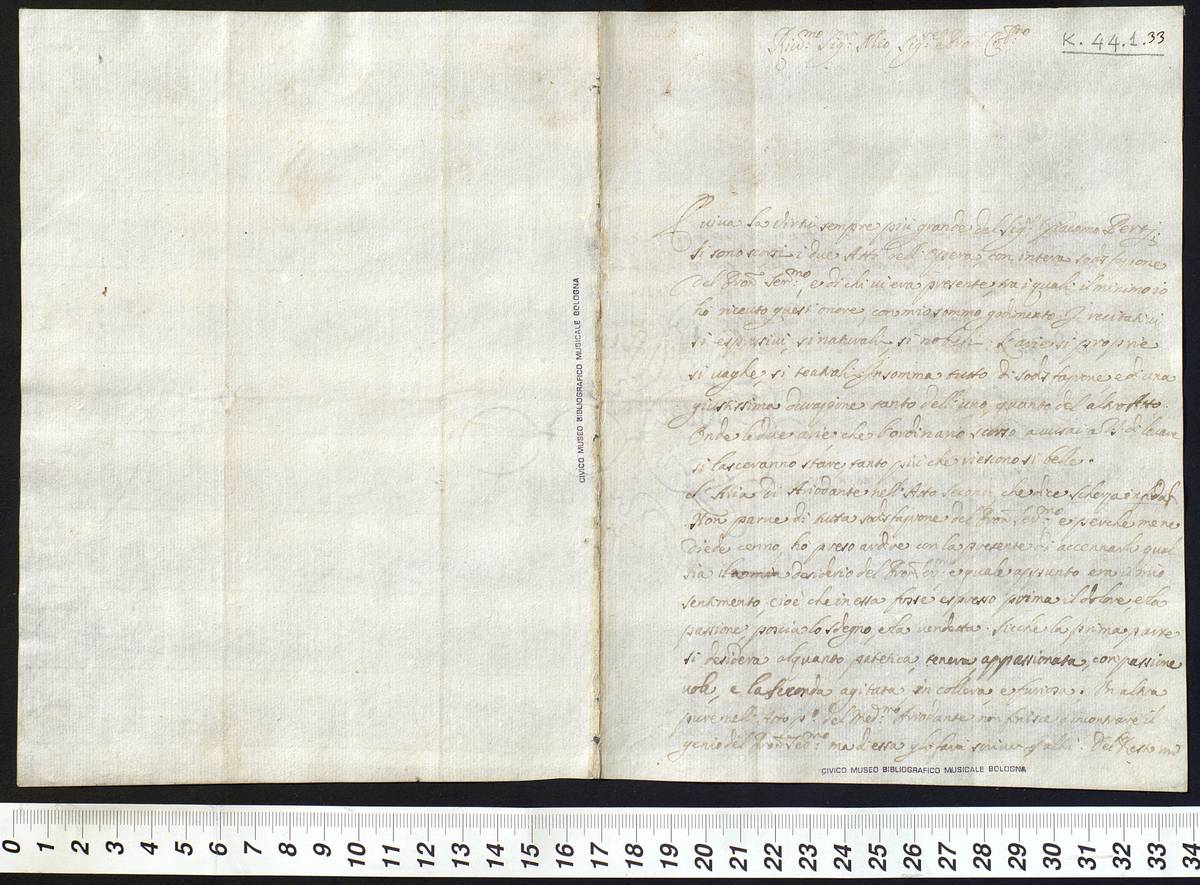 K. 44.1.33
Riv:mo Sig:r Mio Sig:r e Pron
E viva la virtù sempre più grande del Sig:r Giacomo Perti.
Si sono scorsi i due Atti dell'Opera, con intera sodisfazione
del Pron Ser:mo e di chi vi era presente, fra i quali il minimo io
hò riceuto quest'onore, con mio sommo godimento. I recitativi
si espressivi, si naturali, si nobili. L'arie si proprie
si vaghe, si teatrali. Insomma tutto di sodisfazione e di una
giustissima durazione tanto dell'uno, quanto del altro Atto.
Onde le due arie che l'ordinario scorso avvisai a di levare
si lasceranno stare tanto più che riescono si belle.
L'Aria di Ariodante nell'Atto Secondo, che dice Scherza infida
Non parue di tutta sodisfazione del Pron Ser:mo e perche me ne
diede cenno, hò preso ardire con la presente di accennarli qual
sia il desiderio del Pron e quale assunto era il mio
sentimento, cioè che in essa fosse espresso prima il dolore, e la
passione, poscia lo sdegno e la vendetta. Sicche la prima parte
si desidera alquanto patetica, tenera, appassionata, compassione
vole, e la seconda agitata in collera, e furiosa. Un altra
pure nell'Atto p:o del Med:mo Ariodante non finisce d'incontrare il
genio del Pron Ser:mo ma d'essa gle farà scriver altri. Del Resto mi
CIVICO MUSEO BIBLIOGRAFICO MUSICALE BOLOGNA
CIVICO MUSEO BIBLIOGRAFICO MUSICALE BOLOGNA
0 1 2 3 4 5 6 7 8 9 10 11 12 13 14 15 16 17 18 19 20 21 22 23 24 25 26 27 28 29 30 31 32 33 34